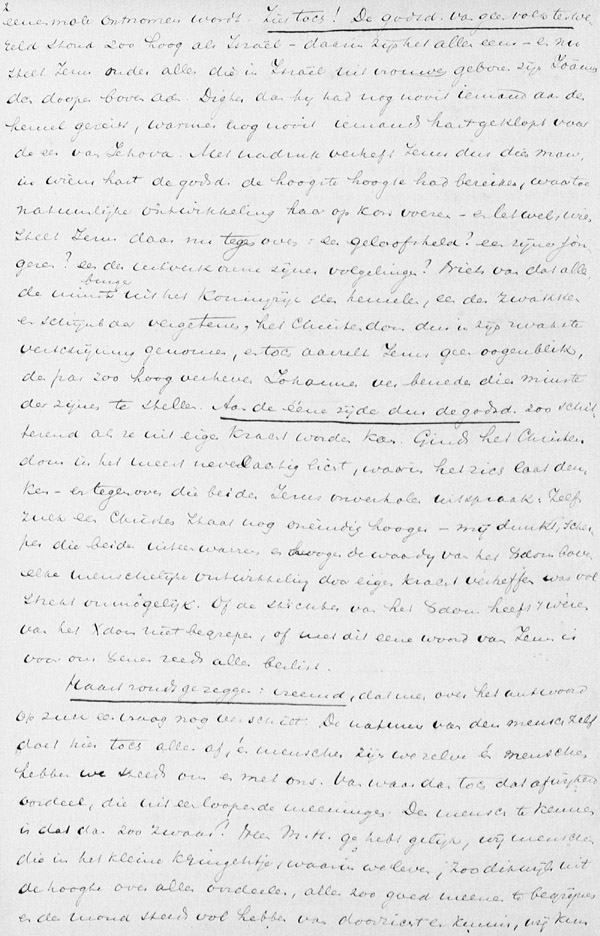 2
eenmale ontnomen wordt. Zies toch! De godsd. van geen volk ter we-
reld stond zoo hoog als Israël – daarin zijn het allen eens – en nu
stelt Jezus onder allen die in Israël uit vrouwen geboren zijn Joannes
den dooper boven aan. Digter dan hij had nog nooit iemand aan den
hemel gereikt, warmer nog nooit iemands hart geklopt voor
de eer van Jehova. Met nadruk verheft Jezus dus dien man,
in wiens hart de godsd. de hoogste hoogte had bereikt, waartoe
natuurlijke ontwikkeling haar op kon voeren – en let wel wien
stelt Jezus daar nu tegen over: een geloofsheld? een zijner jon-
geren? een der uitverkorenen zijner volgelingen? Niets van dat alles,
de minste uit het Koningrijk der hemelen, een der zwakken
en schijnbaar vergetenen, het Christendom dus in zijn zwakste
verschijning genomen, en toch aarzelt Jezus geen oogenblik,
den pas zoo hoog verheven Johannes ver beneden dien minste
der zijnen te stellen. Aan de ééne zijde dus de godsd. zoo schit-
terend als ze uit eigen kracht worden kan. Ginds het Christen
dom in het meest nevelachtig licht, waarin het zich laat den-
ken – en tegenover die beiden Jezus onverholen uitspraak: Zelfs
zulk een Christen staat nog oneindig hooger – mij dunkt, scher-
per die beiden uiteen warren en hooger de waardij van het Xdom boven
elke menschelijke ontwikkeling door eigen kracht verheffen was vol
strekt onmogelijk. Of de stichter van het Xdom heeft 't wezen
van het Xdom niet begrepen, of met dit eene woord van Jezus is
voor ons Xenen reeds alles beslist.
Haast ronds gezegd: vreemd, dat men over het antwoord
op zulk een vraag nog verschilt. De natuur van den mensch zelf
doet hier toch alles af, en menschen zijn we zelve en menschen
hebben we steeds om en met ons. Van waar dan toch dat afwijkend
oordeel, die uiteenloopende meeningen. Den mensch te kennen
is dat dan zoo zwaar? Neen M.H. ge hebt gelijk, wij menschen
die in het kleine kringetje, waarin we leven, zoo dikwijls uit
de hoogte over alles oordeelen, alles zoo goed meenen te begrijpen
en den mond steeds vol hebben van doorzicht en kennis, wij ken